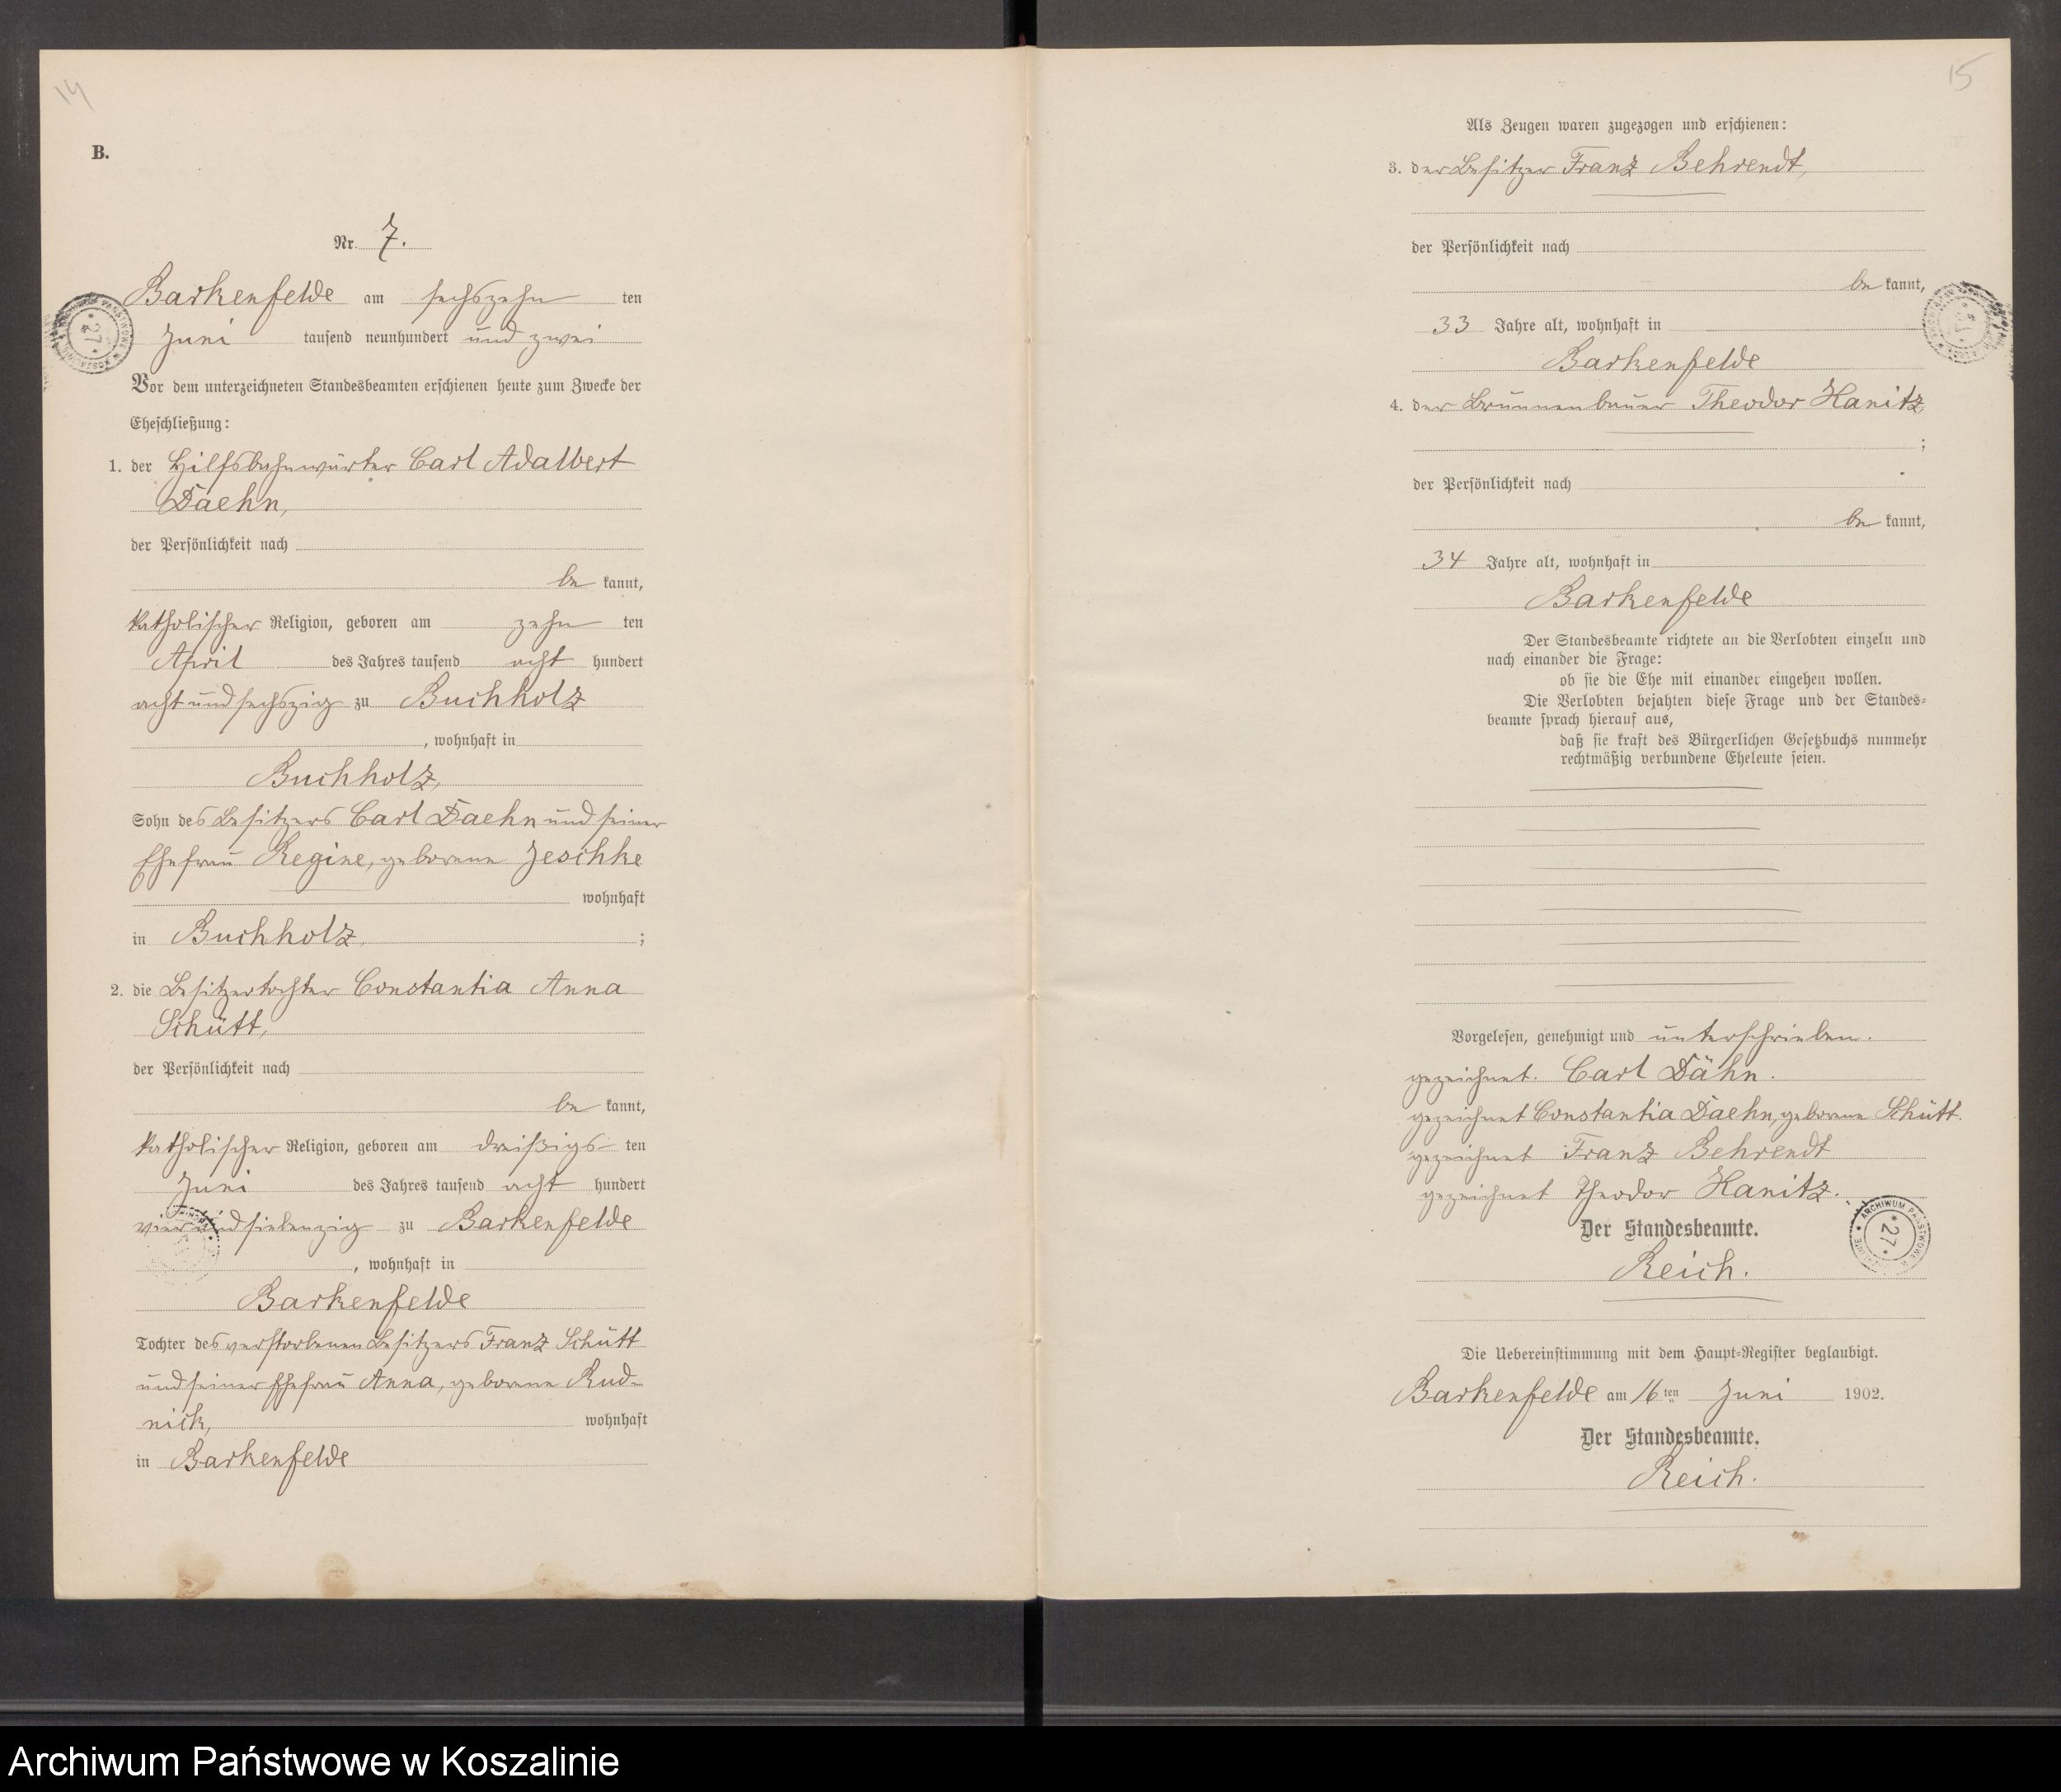 14
B.
Nr. 7.
Barkenfelde am sechszehn ten
Juni tausend neunhundert und zwei
Vor dem unterzeichneten Standesbeamten erschienen heute zum Zwecke der
Eheschließung:
1. der Hilfsbahnwärter Carl Adalbert
Daehn,
der Persönlichkeit nach
be kannt,
katholischer Religion, geboren am zehn ten
April des Jahres tausend acht hundert
acht und sechszig zu Buchholz
, wohnhaft in
Buchholz,
Sohn des Besitzers Carl Daehn und seiner
Ehefrau Regine, geborene Jeschke
wohnhaft
in Buchholz, ;
2. die Besitzertochter Constantia Anna
Schütt,
der Persönlichkeit nach
be kannt,
katholischer Religion, geboren am dreißigs ten
Juni des Jahres tausend acht hundert
vier und siebenzig zu Barkenfelde
, wohnhaft in
Barkenfelde
Tochter des verstorbenen Besitzers Franz Schütt
und seiner Ehefrau Anna, geborene Rud-
nick, wohnhaft
in Barkenfelde
15
Als Zeugen waren zugezogen und erschienen:
3. der Besitzer Franz Behrendt,
der Persönlichkeit nach
be kannt,
33 Jahre alt, wohnhaft in
Barkenfelde
4. der Brunnenbauer Theodor Hanitz,
;
der Persönlichkeit nach
be kannt,
34 Jahre alt, wohnhaft in
Barkenfelde
Der Standesbeamte richtete an die Verlobten einzeln und
nach einander die Frage:
ob sie die Ehe mit einander eingehen wollen.
Die Verlobten bejahten diese Frage und der Standes-
beamte sprach hierauf aus,
daß sie kraft des Bürgerlichen Gesetzbuchs nunmehr
rechtmäßig verbundene Eheleute seien.
Vorgelesen, genehmigt und unterschrieben.
gezeichnet. Carl Dähn.
gezeichnet Constantia Daehn, geborene Schütt.
gezeichnet Franz Behrendt
gezeichnet Theodor Hanitz.
Der Standesbeamte.
Reich.
ARCHIWUM PAŃSTWOWE
*27*
Die Uebereinstimmung mit dem Haupt-Register beglaubigt.
Barkenfelde am 16 ten Juni 1902.
Der Standesbeamte.
Reich.
Archiwum Państwowe w Koszalinie